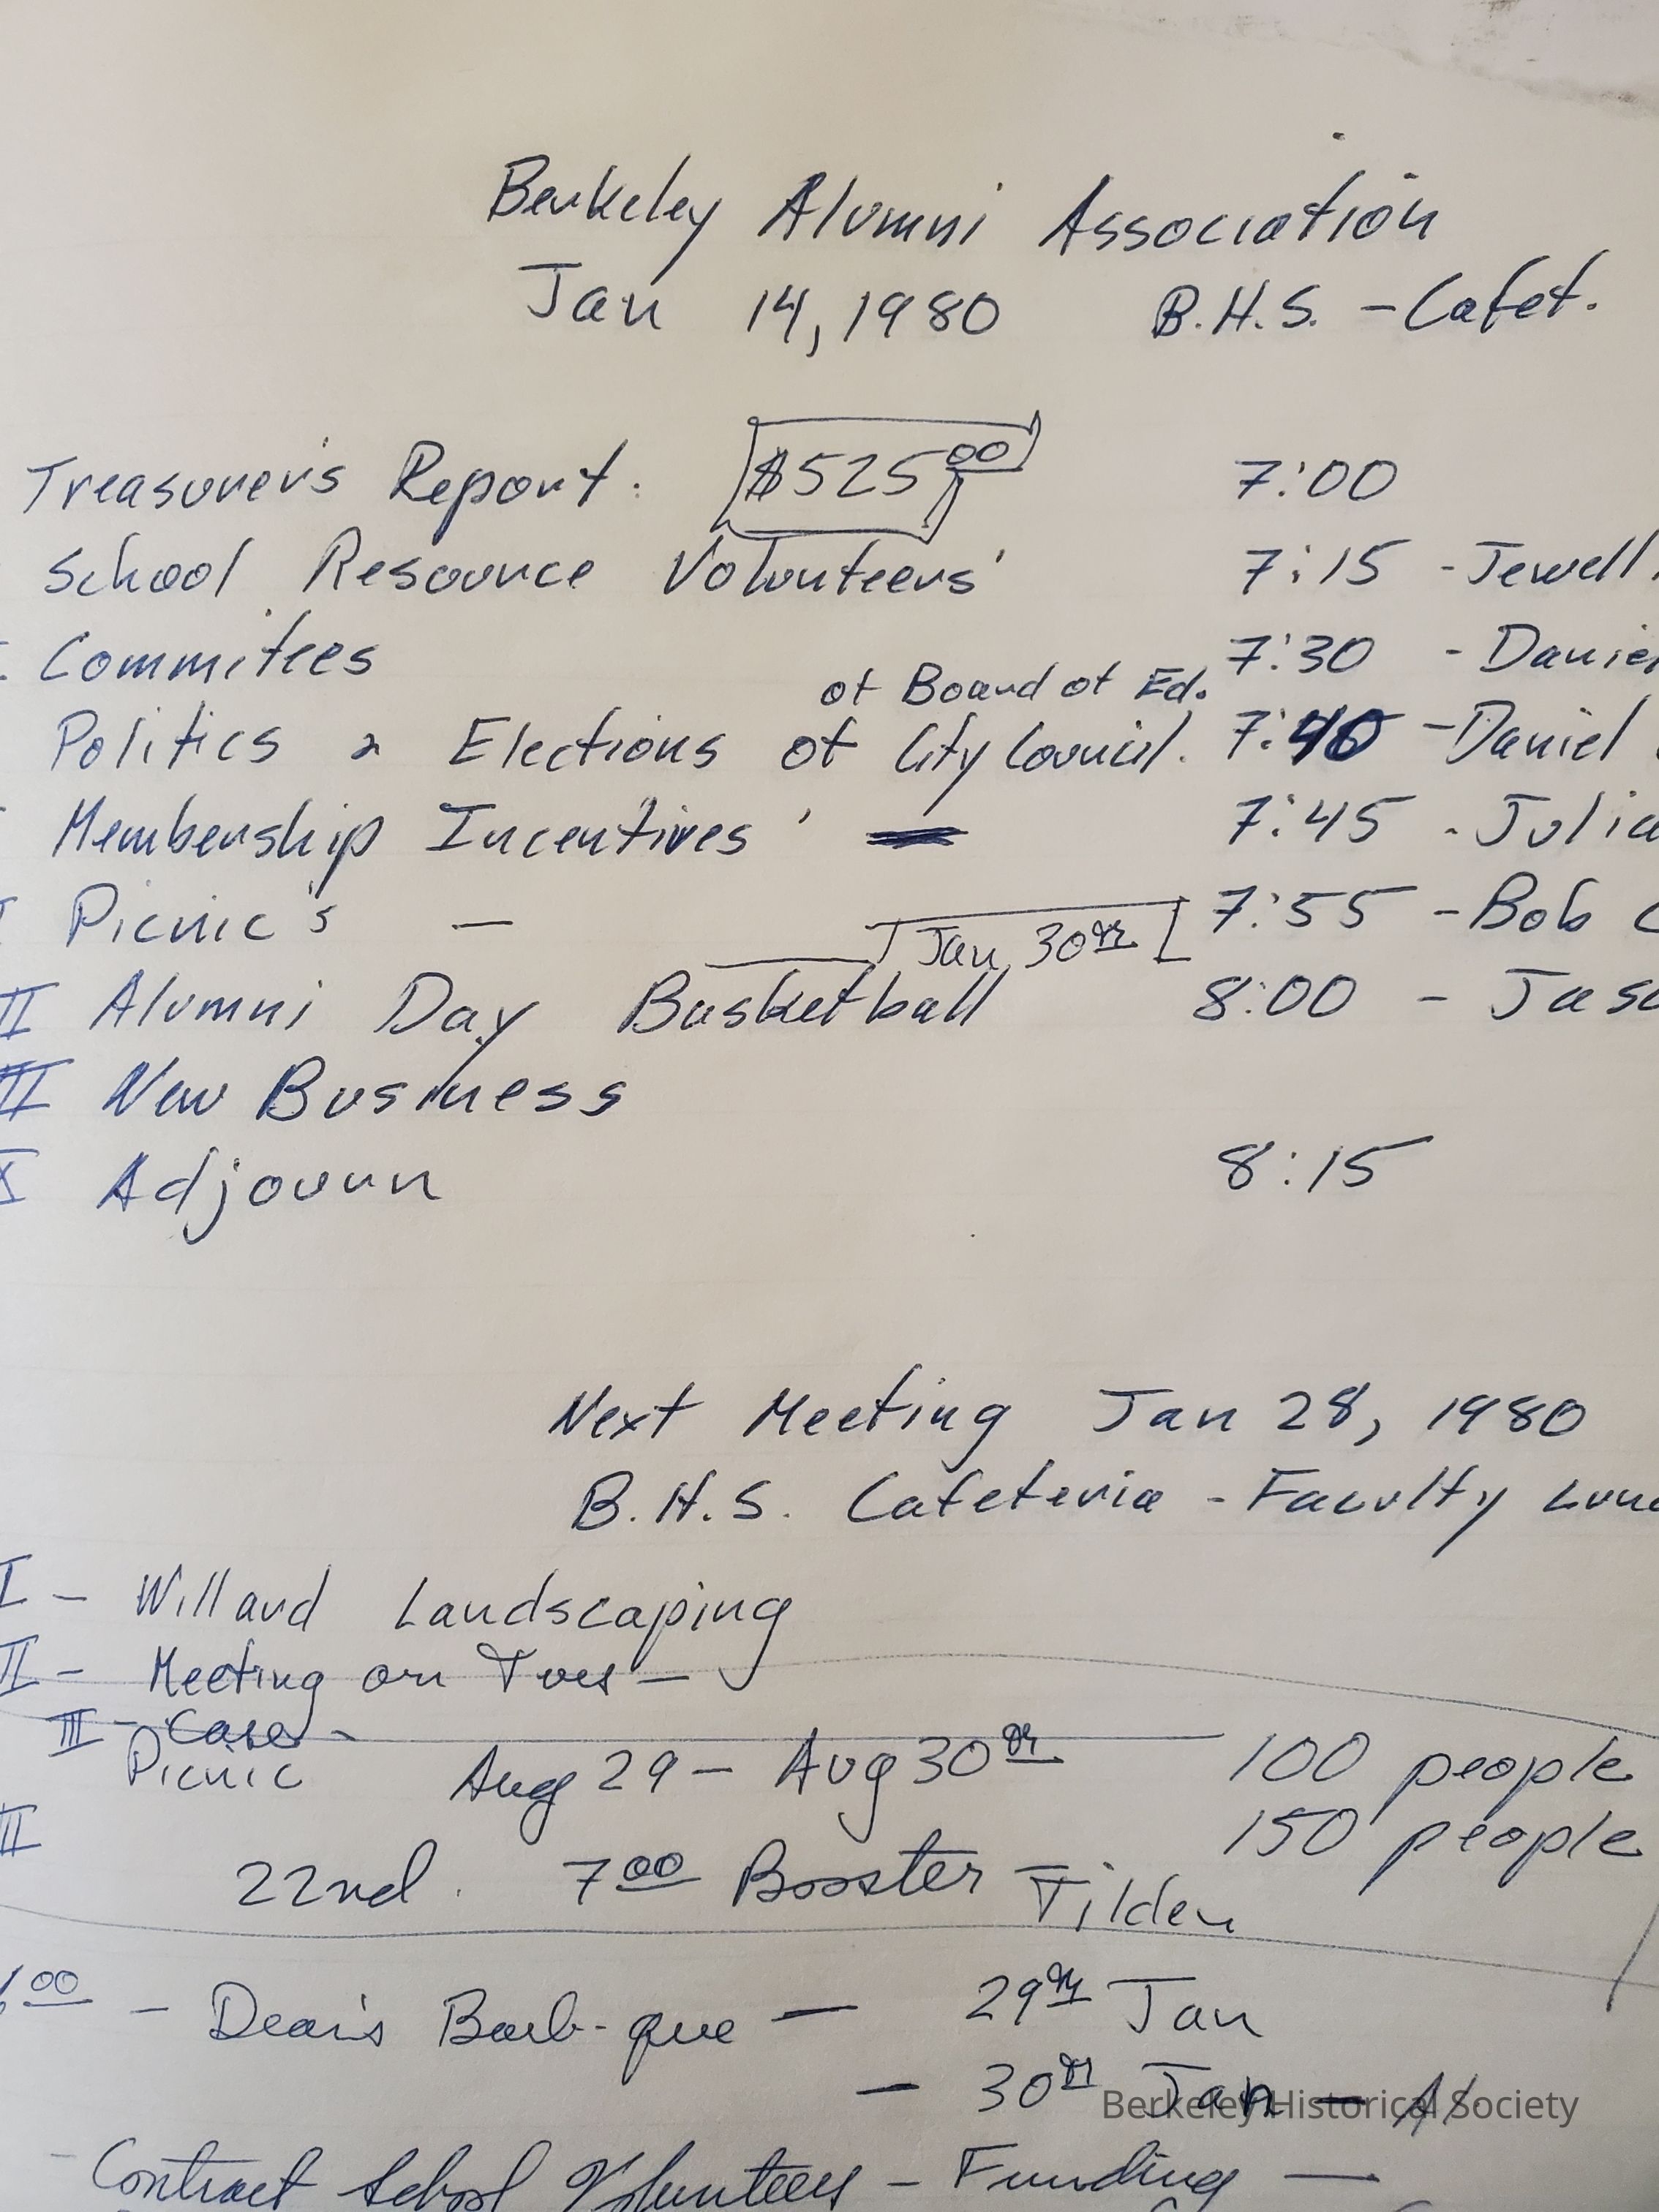 Berkeley Alumni Association
Jan 14, 1980 B.H.S. - Cafet.
Treasurer's Report. $525.00 7:00
School Resource Volunteers' 7:15 - Jewell
Commitees 7:30 - Daniel
of Board of Ed.
Politics & Elections of City Council. 7:40 - Daniel
Membership Incentives' 7:45 - Julia
Picnic's — 7:55 - Bob C
Jan 30th
II Alumni Day Basketball 8:00 - Jaso
III New Business
X Adjourn 8:15
Next Meeting Jan 28, 1980
B.H.S. Cafeteria - Faculty Lunc
I - Willard Landscaping
II - Meeting on Tues —
III - Case -
Picnic Aug 29 - Aug 30th 100 people
II 150 people
22nd. 7:00 Booster Tilden
:00 - Dean's Barb-que — 29th Jan
— 30th Jan — A
- Contract School Volunteers - Funding —
Berkeley Historical Society